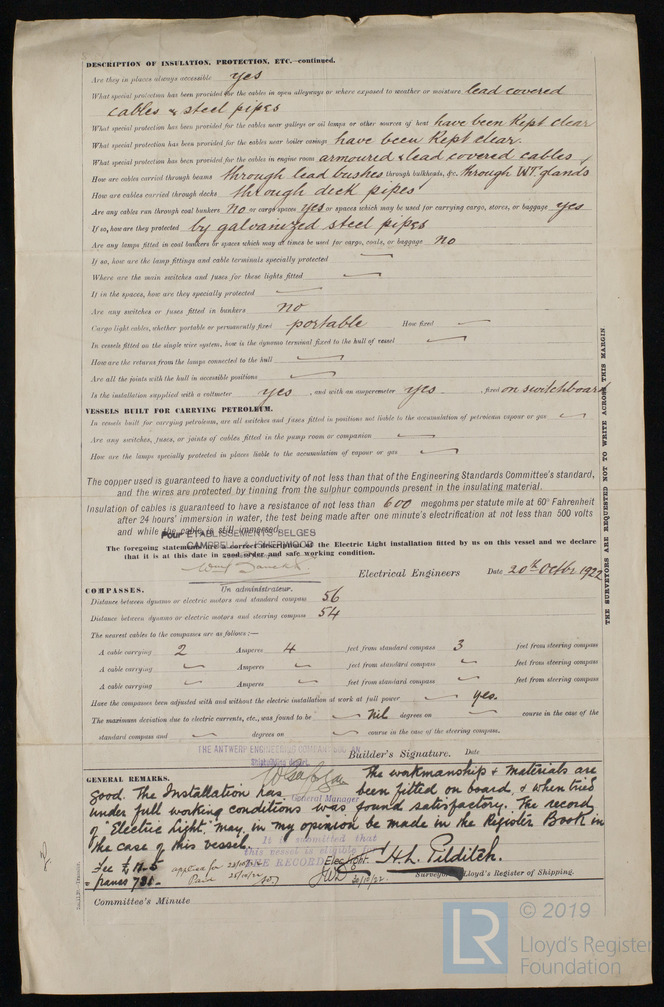 DESCRIPTION OF INSULATION, PROTECTION, ETC.—continued.
Are they in places always accessible yes
What special protection has been provided for the cables in open alleyways or where exposed to weather or moisture lead covered
cables & steel pipes
What special protection has been provided for the cables near galleys or oil lamps or other sources of heat have been kept clear
What special protection has been provided for the cables near boiler casings have been kept clear.
What special protection has been provided for the cables in engine room armoured & lead covered cables
How are cables carried through beams through lead bushes through bulkheads, &c. through W.T. glands
How are cables carried through decks through deck pipes
Are any cables run through coal bunkers no or cargo spaces yes or spaces which may be used for carrying cargo, stores, or baggage yes
If so, how are they protected by galvanized steel pipes
Are any lamps fitted in coal bunkers or spaces which may at times be used for cargo, coals, or baggage no
If so, how are the lamp fittings and cable terminals specially protected
Where are the main switches and fuses for these lights fitted
If in the spaces, how are they specially protected
Are any switches or fuses fitted in bunkers no
Cargo light cables, whether portable or permanently fixed portable How fixed
In vessels fitted on the single wire system, how is the dynamo terminal fixed to the hull of vessel
How are the returns from the lamps connected to the hull
Are all the joints with the hull in accessible positions
Is the installation supplied with a voltmeter yes , and with an amperemeter yes , fixed on switchboard
VESSELS BUILT FOR CARRYING PETROLEUM.
In vessels built for carrying petroleum, are all switches and fuses fitted in positions not liable to the accumulation of petroleum vapour or gas
Are any switches, fuses, or joints of cables fitted in the pump room or companion
How are the lamps specially protected in places liable to the accumulation of vapour or gas
The copper used is guaranteed to have a conductivity of not less than that of the Engineering Standards Committee's standard,
and the wires are protected by tinning from the sulphur compounds present in the insulating material.
Insulation of cables is guaranteed to have a resistance of not less than 600 megohms per statute mile at 60° Fahrenheit
after 24 hours' immersion in water, the test being made after one minute's electrification at not less than 500 volts
and while the cable is still immersed.
Pour ETABLISSEMENTS BELGES
The foregoing statements are a correct description of the Electric Light installation fitted by us on this vessel and we declare
that it is at this date in good order and safe working condition.
Electrical Engineers Date 20th Octbr 1922
Un administrateur.
COMPASSES.
Distance between dynamo or electric motors and standard compass 56
Distance between dynamo or electric motors and steering compass 54
The nearest cables to the compasses are as follows:—
A cable carrying 2 Amperes 4 feet from standard compass 3 feet from steering compass
A cable carrying Amperes feet from standard compass feet from steering compass
A cable carrying Amperes feet from standard compass feet from steering compass
Have the compasses been adjusted with and without the electric installation at work at full power yes.
The maximum deviation due to electric currents, etc., was found to be nil degrees on course in the case of the
standard compass and degrees on course in the case of the steering compass.
THE ANTWERP ENGINEERING COMPANY
Shipbuilding Dept.
Builder's Signature. Date
General Manager
GENERAL REMARKS. The workmanship & materials are
good. The Installation has been fitted on board, & when tried
under full working conditions was found satisfactory. The record
of "Electric Light", may, in my opinion be made in the Register Book in
the case of this vessel.
It is submitted that
this vessel is eligible for
THE RECORD Elec. light.
Fee £ 12.5 applied for
francs 731 Paid 25/10/22
30/10/22.
H. L. Pilditch.
Surveyor Lloyd's Register of Shipping.
Committee's Minute
THE SURVEYORS ARE REQUESTED NOT TO WRITE ACROSS THIS MARGIN
© 2019
LR
Lloyd's Register
Foundation